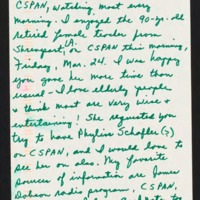 CSPAN, watching most every
morning. I enjoyed the 90-yr. old
retired female teacher from
Shreveport, LA. on CSPAN this morning,
Friday, Mar. 24. I was happy
you gave her more time than
usual - I love elderly people
+ think most are very wise +
entertaining! She requested you
try to have Phyllis Schafley (?)
on CSPAN, and I would love to
see her on also. My favorite
sources of information are James
Dobson radio program, CSPAN,